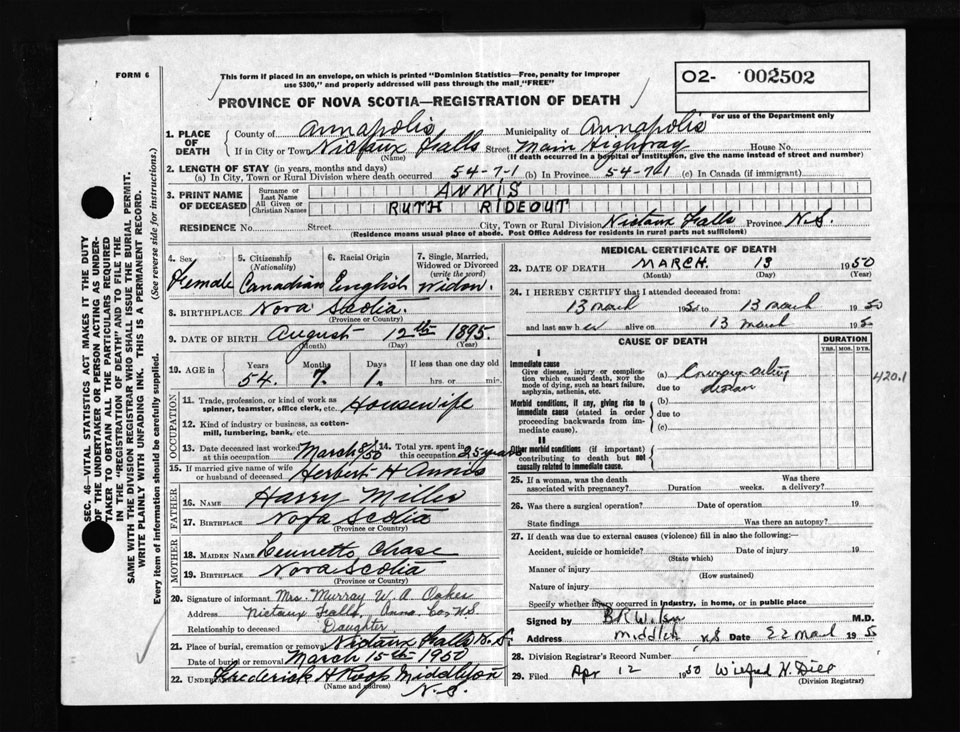 FORM 6
This form if placed in an envelope, on which is printed "Dominion Statistics—Free, penalty for improper
use $300," and properly addressed will pass through the mail "FREE"
O2- 002502
For use of the Department only
PROVINCE OF NOVA SCOTIA—REGISTRATION OF DEATH
1. PLACE OF DEATH County of Annapolis Municipality of Annapolis
If in City or Town Nictaux Falls Street Main Highway House No.
(Name) (If death occurred in a hospital or institution, give the name instead of street and number)
2. LENGTH OF STAY (in years, months and days)
(a) In City, Town or Rural Division where death occurred 54-7-1 (b) In Province 54-7-1 (c) In Canada (if immigrant)
3. PRINT NAME OF DECEASED Surname or Last Name ANNIS
All Given or Christian Names RUTH RIDEOUT
RESIDENCE No. Street City, Town or Rural Division Nictaux Falls Province N.S.
(Residence means usual place of abode. Post Office Address for residents in rural parts not sufficient)
4. Sex Female
5. Citizenship (Nationality) Canadian
6. Racial Origin English
7. Single, Married, Widowed or Divorced (write the word) Widow.
8. BIRTHPLACE Nova Scotia.
(Province or Country)
9. DATE OF BIRTH August 12th 1895.
(Month) (Day) (Year)
10. AGE in Years 54. Months 7. Days 1. If less than one day old
hrs. or min.
OCCUPATION
11. Trade, profession, or kind of work as
spinner, teamster, office clerk, etc. Housewife
12. Kind of industry or business, as cotton-
mill, lumbering, bank, etc.
13. Date deceased last worked at this occupation March 14. Total yrs. spent in this occupation 25 years
15. If married give name of wife
or husband of deceased Herbert H Annis
FATHER
16. NAME Harry Miller
17. BIRTHPLACE Nova Scotia
(Province or Country)
MOTHER
18. MAIDEN NAME Chase
19. BIRTHPLACE Nova Scotia
(Province or Country)
20. Signature of informant Mrs. Murray W. A. Oakes
Address Nictaux Falls, Anna. Co. N.S.
Relationship to deceased Daughter
21. Place of burial, cremation or removal Nictaux Falls
Date of burial or removal March 15th 1950
22. Undertaker Frederick H Roop Middleton
(Name and address) N.S.
MEDICAL CERTIFICATE OF DEATH
23. DATE OF DEATH MARCH. 13 1950
(Month) (Day) (Year)
24. I HEREBY CERTIFY that I attended deceased from:
13 March 1950 to 13 March 1950
and last saw her alive on 13 March 1950
CAUSE OF DEATH
DURATION
YRS. MOS. DYS.
I
Immediate cause
Give disease, injury or complica-
tion which caused death, NOT the
mode of dying, such as heart failure,
asphyxia, asthenia, etc.
(a) Coronary artery
due to disease
420.1
Morbid conditions, if any, giving rise to
immediate cause (stated in order
proceeding backwards from im-
mediate cause).
(b)
due to
(c)
II
Other morbid conditions (if important)
contributing to death but not
causally related to immediate cause.
25. If a woman, was the death
associated with pregnancy? Duration weeks. Was there
a delivery?
26. Was there a surgical operation? Date of operation 19
State findings Was there an autopsy?
27. If death was due to external causes (violence) fill in also the following:—
Accident, suicide or homicide? Date of injury 19
(State which)
Manner of injury
(How sustained)
Nature of injury
Specify whether injury occurred in industry, in home, or in public place
Signed by M.D.
Address N.S. Date 22 March 1950
28. Division Registrar's Record Number
29. Filed Apr 12 1950 Wilfred H. Dill
(Division Registrar)
SEC. 46—VITAL STATISTICS ACT MAKES IT THE DUTY
OF THE UNDERTAKER OR PERSON ACTING AS UNDER-
TAKER TO OBTAIN ALL THE PARTICULARS REQUIRED
IN THE "REGISTRATION OF DEATH" AND TO FILE THE
SAME WITH THE DIVISION REGISTRAR WHO SHALL ISSUE THE BURIAL PERMIT.
WRITE PLAINLY WITH UNFADING INK. THIS IS A PERMANENT RECORD.
Every item of information should be carefully supplied. (See reverse side for instructions.)